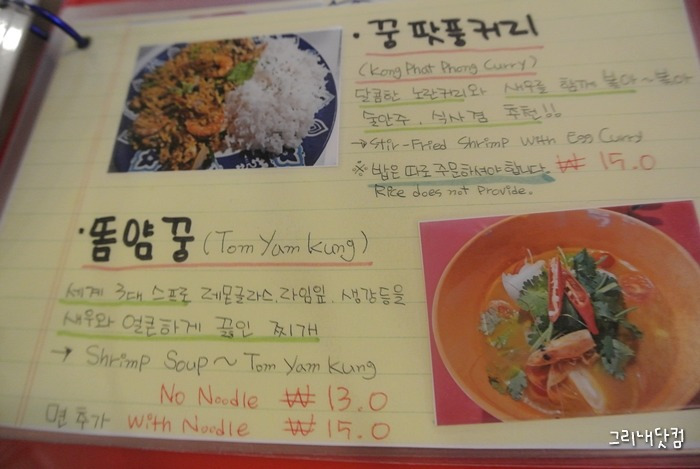 · 꿍 팟퐁커리
(Kong Phat Phong Curry)
달콤한 노란커리와 새우를 함께 볶아~볶아
술안주, 식사겸 추천!!
→ Stir-Fried Shrimp With Egg Curry
※ 밥은 따로 주문하셔야합니다. ₩ 15.0
Rice does not Provide.
· 똠얌꿍 (Tom Yam Kung)
세계 3대 스프로 레몬글라스, 라임잎, 생강등을
새우와 얼큰하게 끓인 찌개
→ Shrimp Soup ~ Tom Yam Kung
No Noodle ₩ 13.0
면 추가 With Noodle ₩ 15.0
그리내닷컴